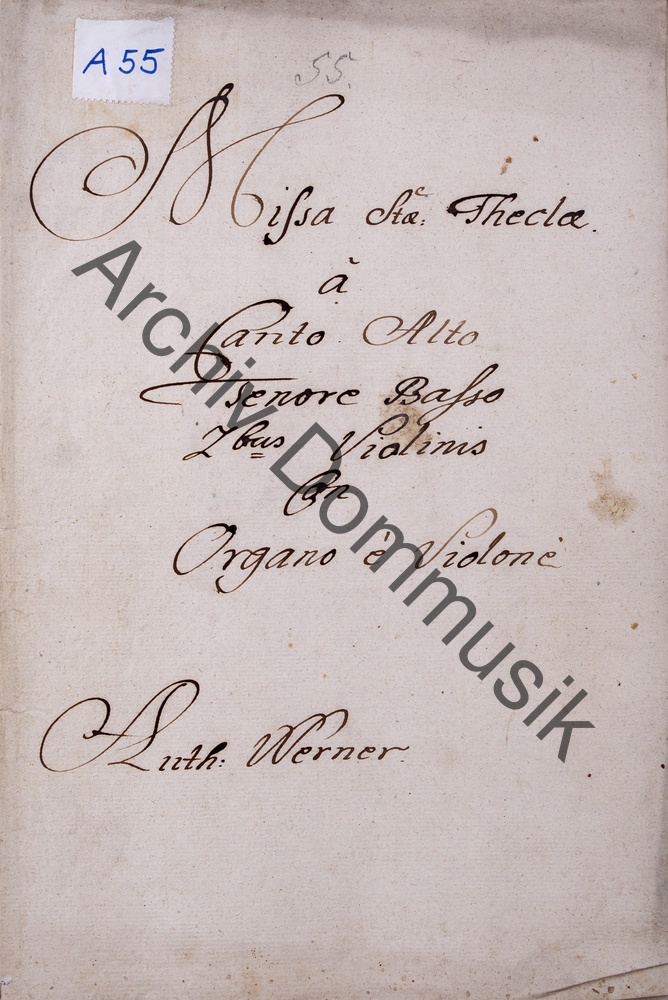 A 55
55.
Missa Stæ: Theclæ.
à
Canto Alto
Tenore Basso
2bus Violinis
Con
Organo è Violonè
Auth: Werner.
Archiv Dommusik